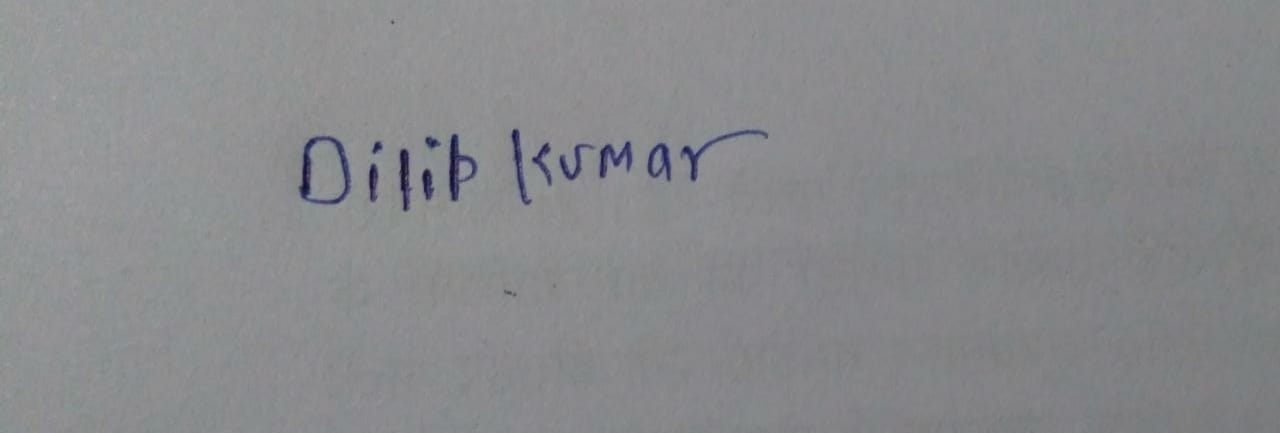 Dilip Kumar